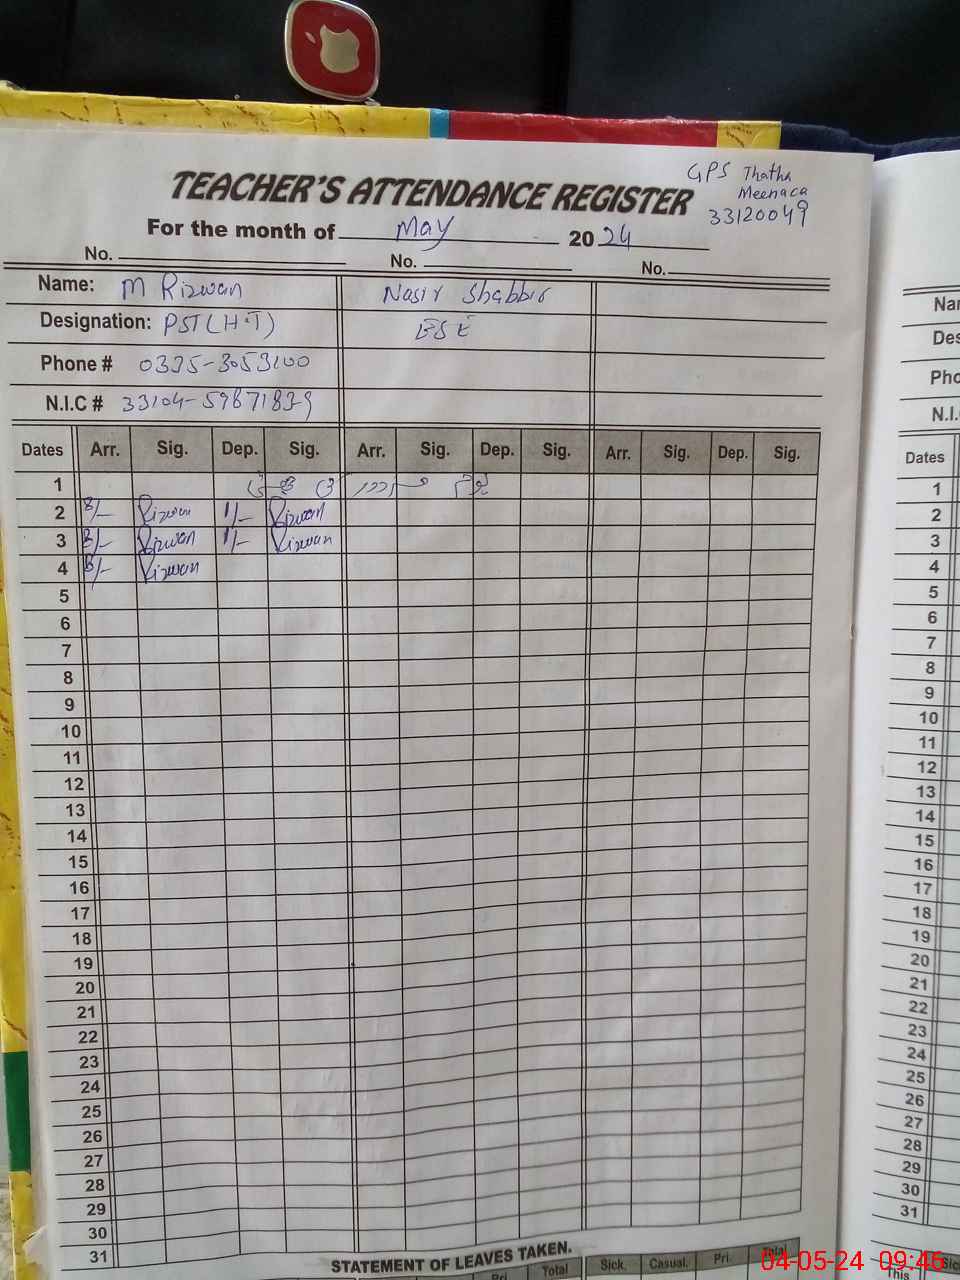 TEACHER'S ATTENDANCE REGISTER
GPS Thatha
Meenaca
33120049
For the month of May 2024
No. No. No.
Name: M Rizwan Nasir Shabbir
Designation: PST (H.T) ESE
Phone # 0335-3053100
N.I.C # 33104-5987183-9
Dates Arr. Sig. Dep. Sig. Arr. Sig. Dep. Sig. Arr. Sig. Dep. Sig.
1
2 8/- Rizwan 1/- Rizwan
3 8/- Rizwan 1/- Rizwan
4 8/- Rizwan
5
6
7
8
9
10
11
12
13
14
15
16
17
18
19
20
21
22
23
24
25
26
27
28
29
30
31
STATEMENT OF LEAVES TAKEN.
Pri. Total Sick. Casual. Pri. Total
Nar
Des
Pho
N.I.
Dates
1
2
3
4
5
6
7
8
9
10
11
12
13
14
15
16
17
18
19
20
21
22
23
24
25
26
27
28
29
30
31
This
04-05-24 09:46